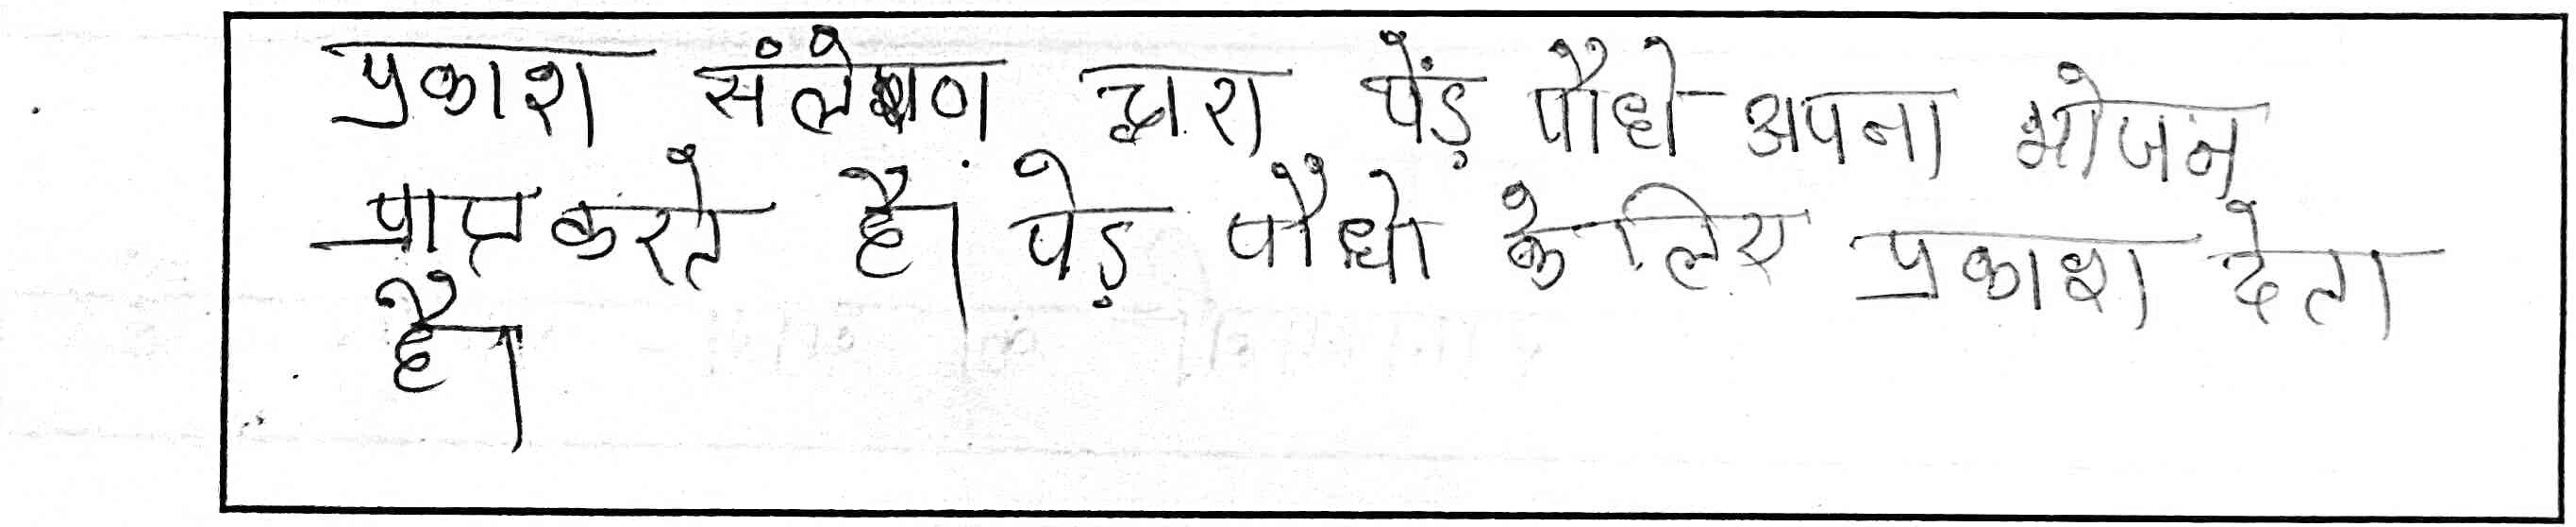 प्रकाश संलेषण द्वारा पेंड़ पौधे अपना भोजन
प्राप्त करते है। पेड़ पौधो के लिए प्रकाश देता
है।